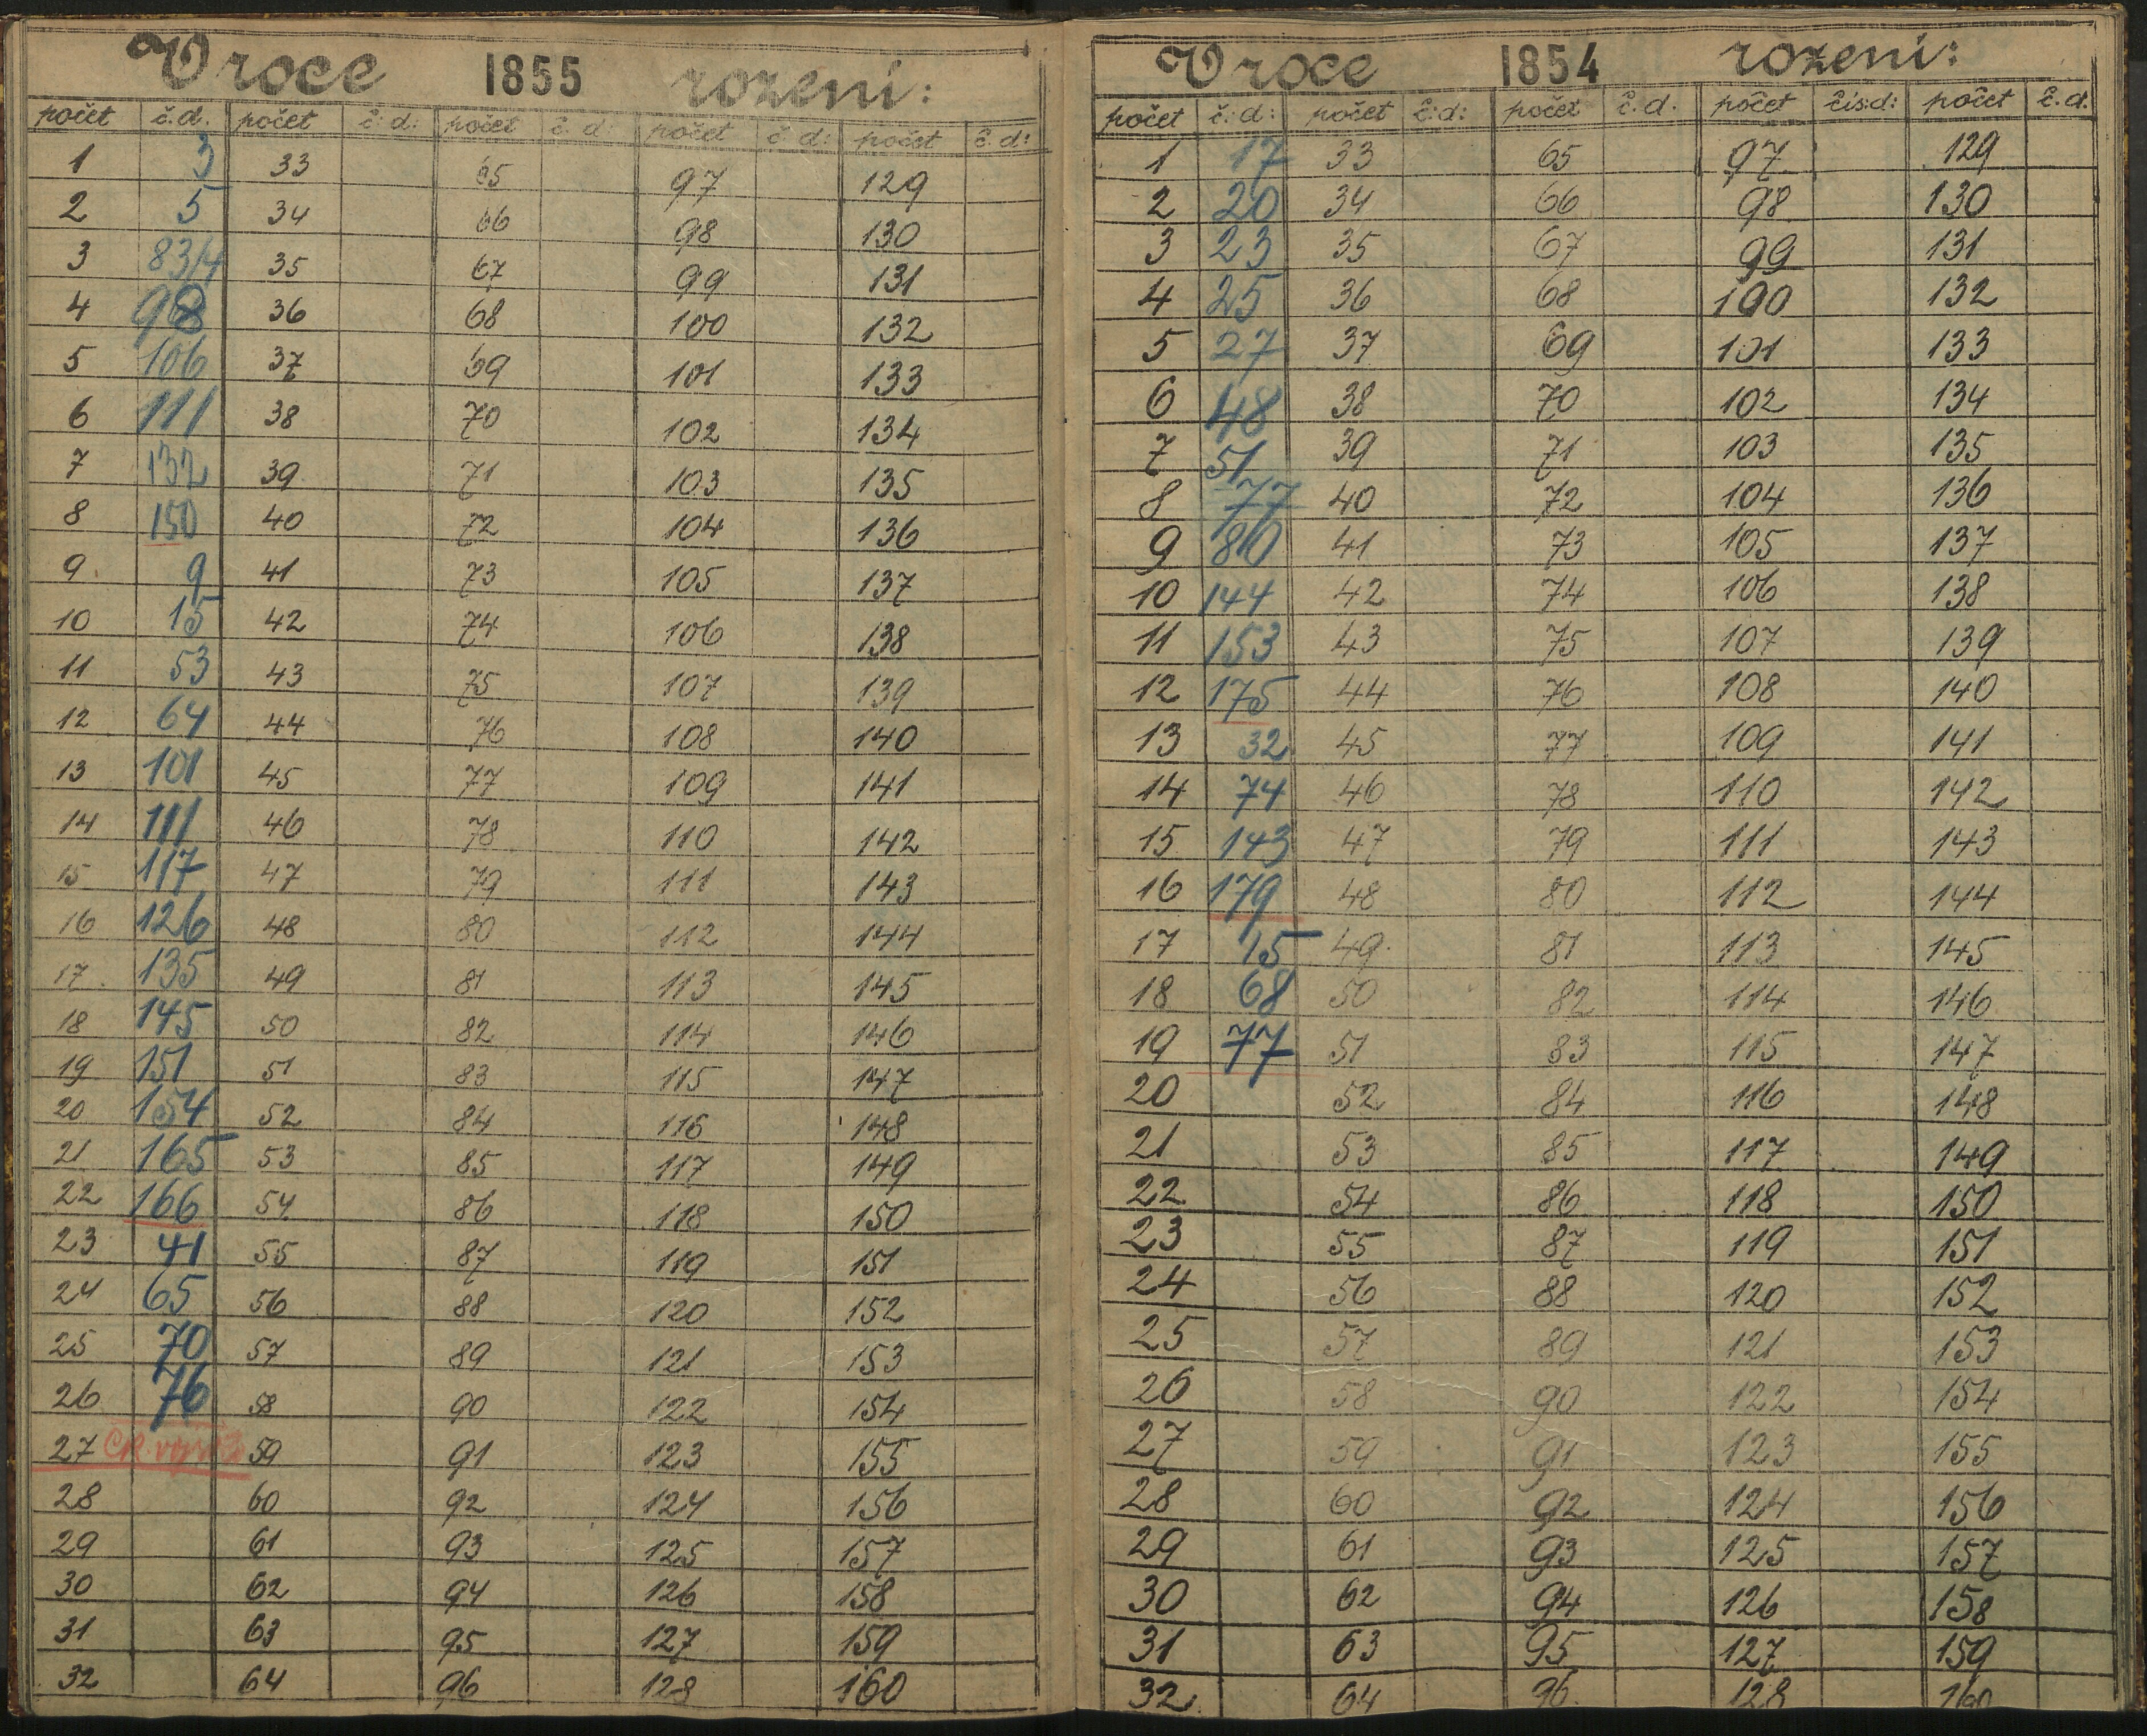 V roce 1855 rozeni:
počet č.d. počet č:d: počet č d: počet č d: počet č.d:
1 3 33 65 97 129
2 5 34 66 98 130
3 83/4 35 67 99 131
4 98 36 68 100 132
5 106 37 69 101 133
6 111 38 70 102 134
7 132 39 71 103 135
8 150 40 72 104 136
9. 9 41 73 105 137
10 15 42 74 106 138
11 53 43 75 107 139
12 64 44 76 108 140
13 101 45 77 109 141
14 111 46 78 110 142
15 117 47 79 111 143
16 126 48 80 112 144
17. 135 49 81 113 145
18 145 50 82 114 146
19 151 51 83 115 147
20 154 52 84 116 148
21 165 53 85 117 149
22 166 54 86 118 150
23 41 55 87 119 151
24 65 56 88 120 152
25 70 57 89 121 153
26 76 58 90 122 154
27 59 91 123 155
28 60 92 124 156
29 61 93 125 157
30 62 94 126 158
31 63 95 127 159
32 64 96 128 160
V roce 1854 rozeni:
počet č:d: počet č:d: počet č.d. počet čís:d: počet č.d.
1 17 33 65 97 129
2 20 34 66 98 130
3 23 35 67 99 131
4 25 36 68 100 132
5 27 37 69 101 133
6 48 38 70 102 134
7 51 39 71 103 135
8 77 40 72 104 136
9 80 41 73 105 137
10 144 42 74 106 138
11 153 43 75 107 139
12 175 44 76 108 140
13 32 45 77 109 141
14 74 46 78 110 142
15 143 47 79 111 143
16 179 48 80 112 144
17 15 49. 81 113 145
18 68 50 82 114 146
19 77 51 83 115 147
20 52 84 116 148
21 53 85 117 149
22 54 86 118 150
23 55 87 119 151
24 56 88 120 152
25 57 89 121 153
26 58 90 122 154
27 59 91 123 155
28 60 92 124 156
29 61 93 125 157
30 62 94 126 158
31 63 95 127 159
32 64 96 128 160